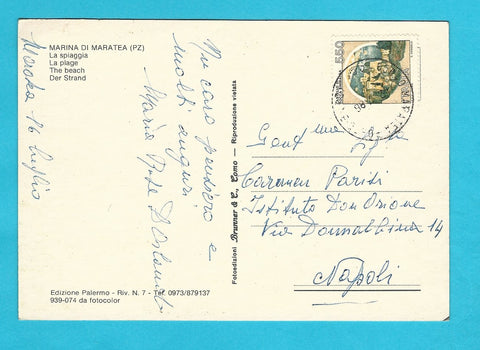 MARINA DI MARATEA (PZ)
La spiaggia
La plage
The beach
Der Strand
Un caro pensiero e
molti auguri
Maria
16 luglio
550
MARATEA
Gent.ma
Carmen Parisi
Istituto Don Orione
Via Donnalbina 14
Napoli
Fotoedizioni Brunner & C., Como - Riproduzione vietata
Edizione Palermo - Riv. N. 7 - Tel. 0973/879137
939-074 da fotocolor